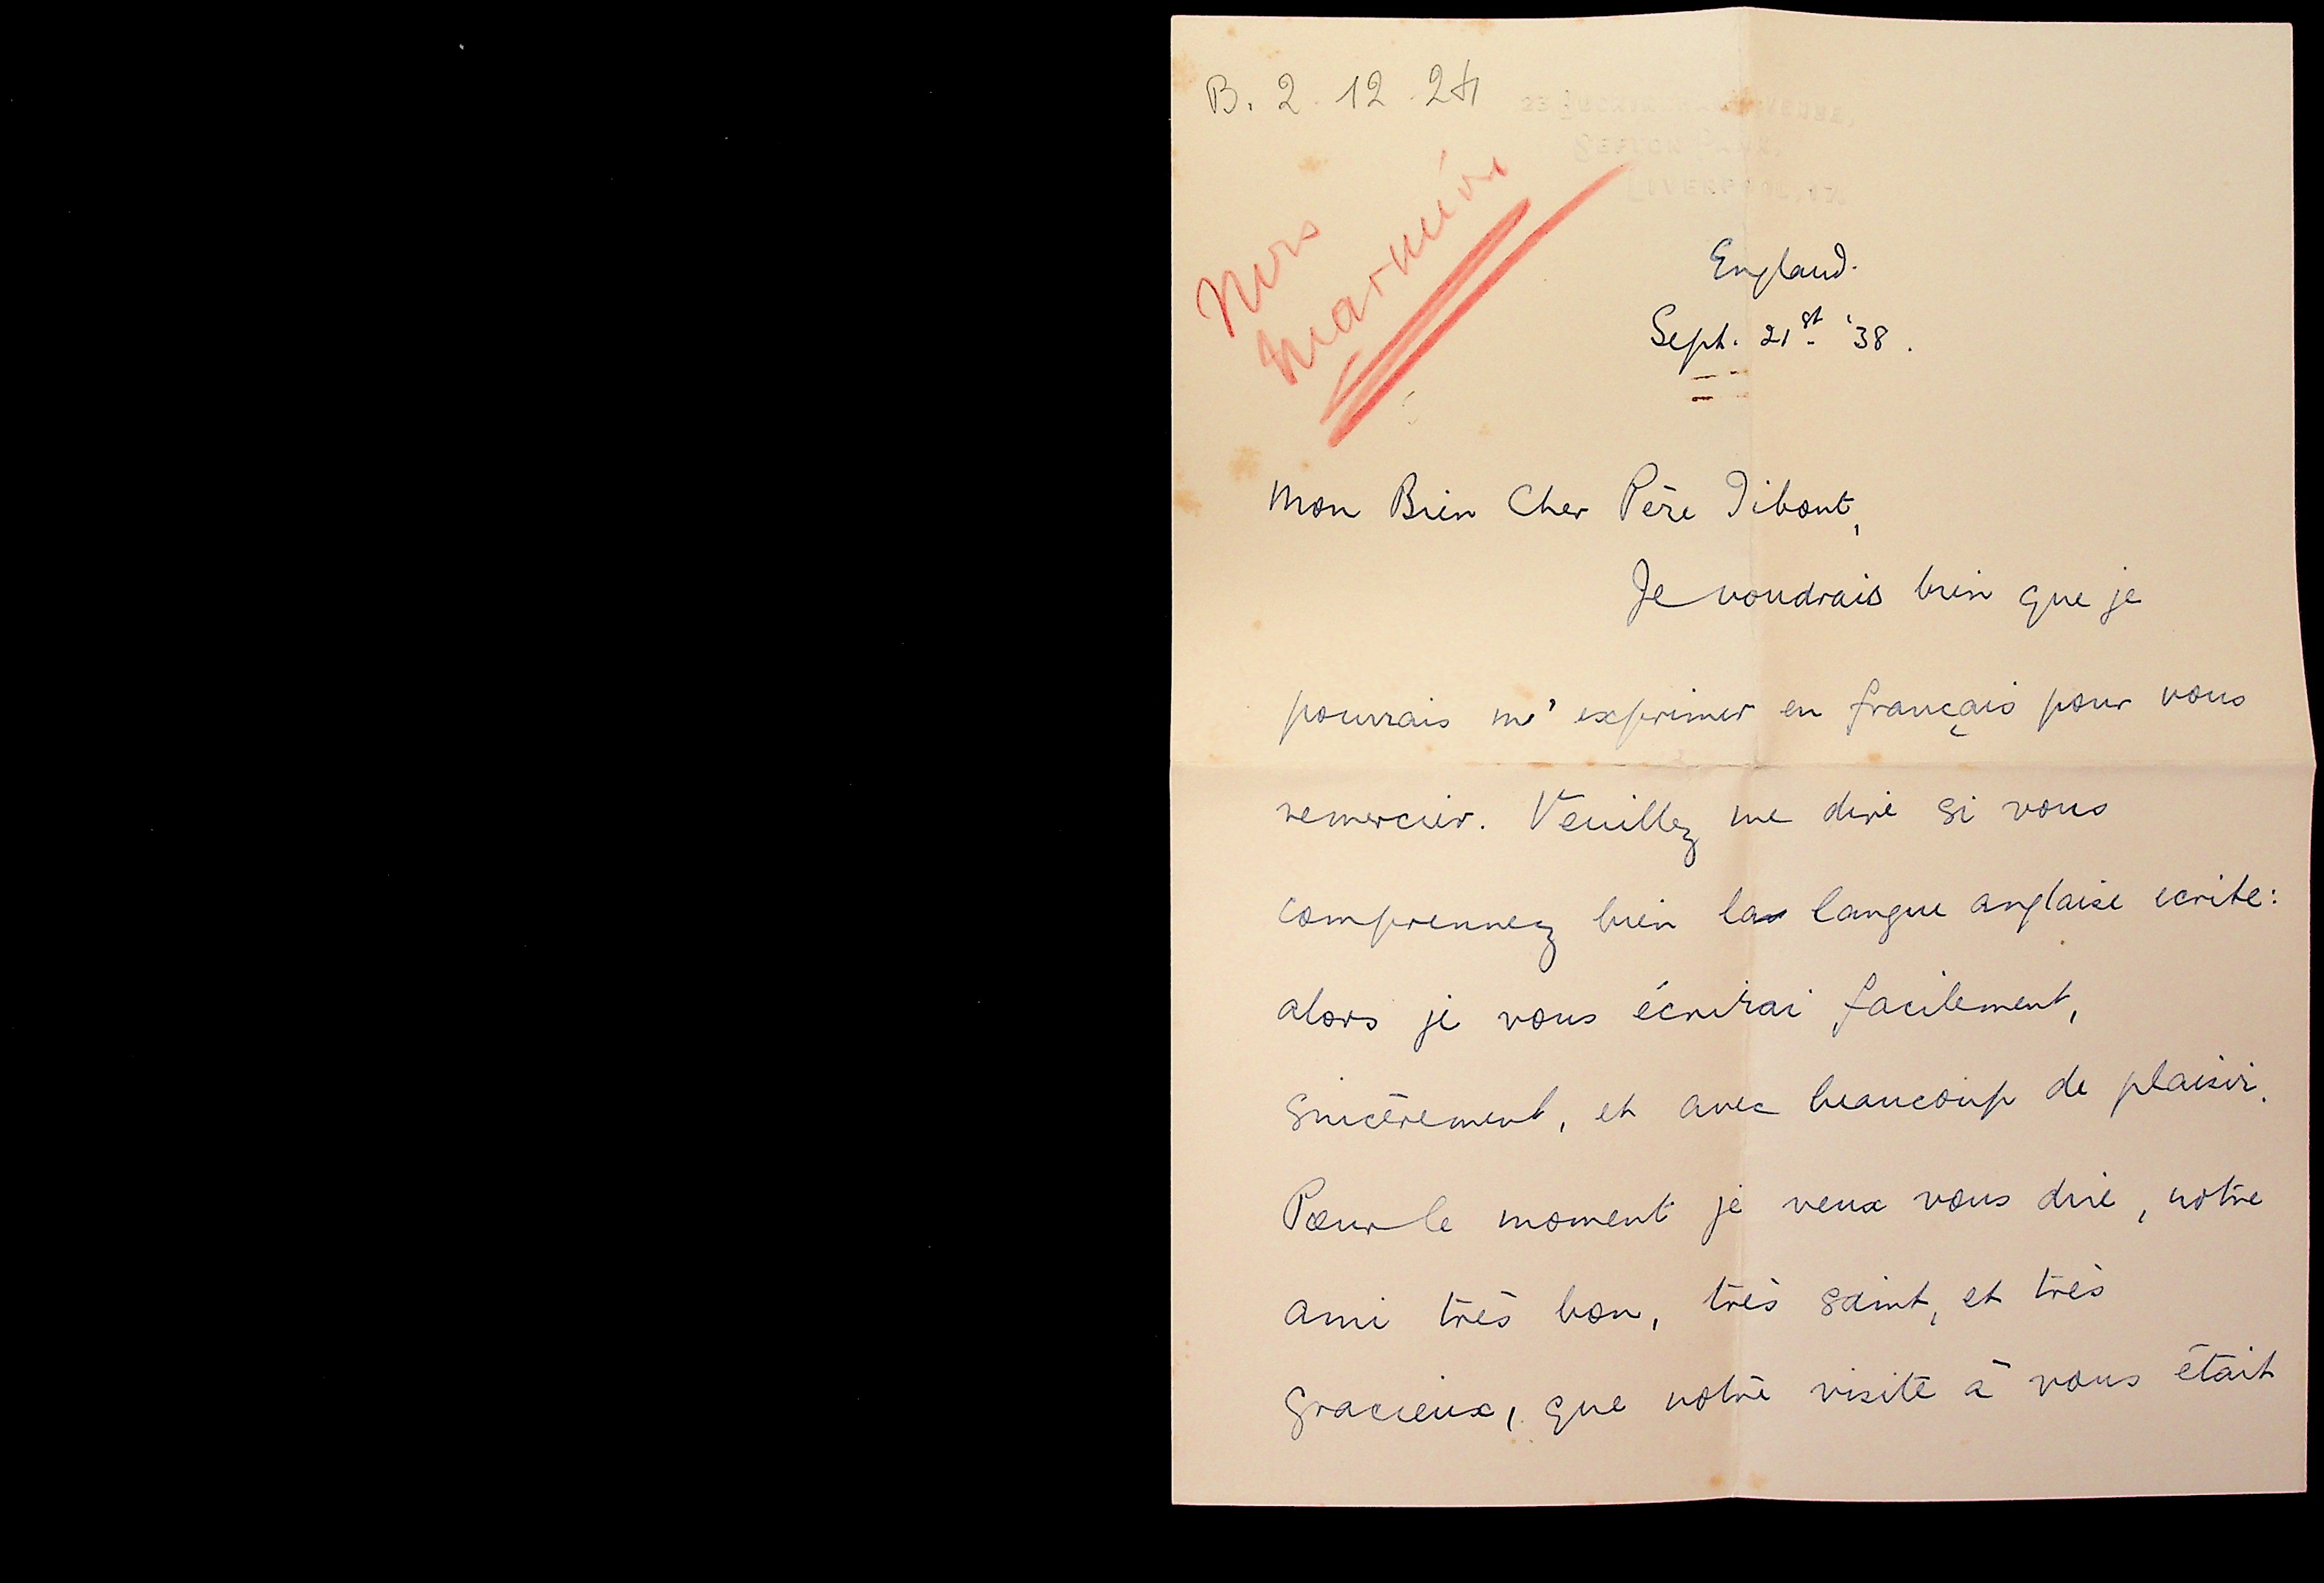 B. 2 12 24
SEFTON PARK,
LIVERPOOL, 17.
England.
Sept. 21st '38.
Mon Bien Cher Père Tibout,
Je voudrais bien que je
pourrais m'exprimer en français pour vous
remercier. Veuillez me dire si vous
comprennez bien la langue anglaise ecrite:
alors je vous écrirai facilement,
sincèrement, et avec beaucoup de plaisir.
Pour le moment je veux vous dire, notre
ami très bon, très saint, et très
gracieux, que notre visite à vous était